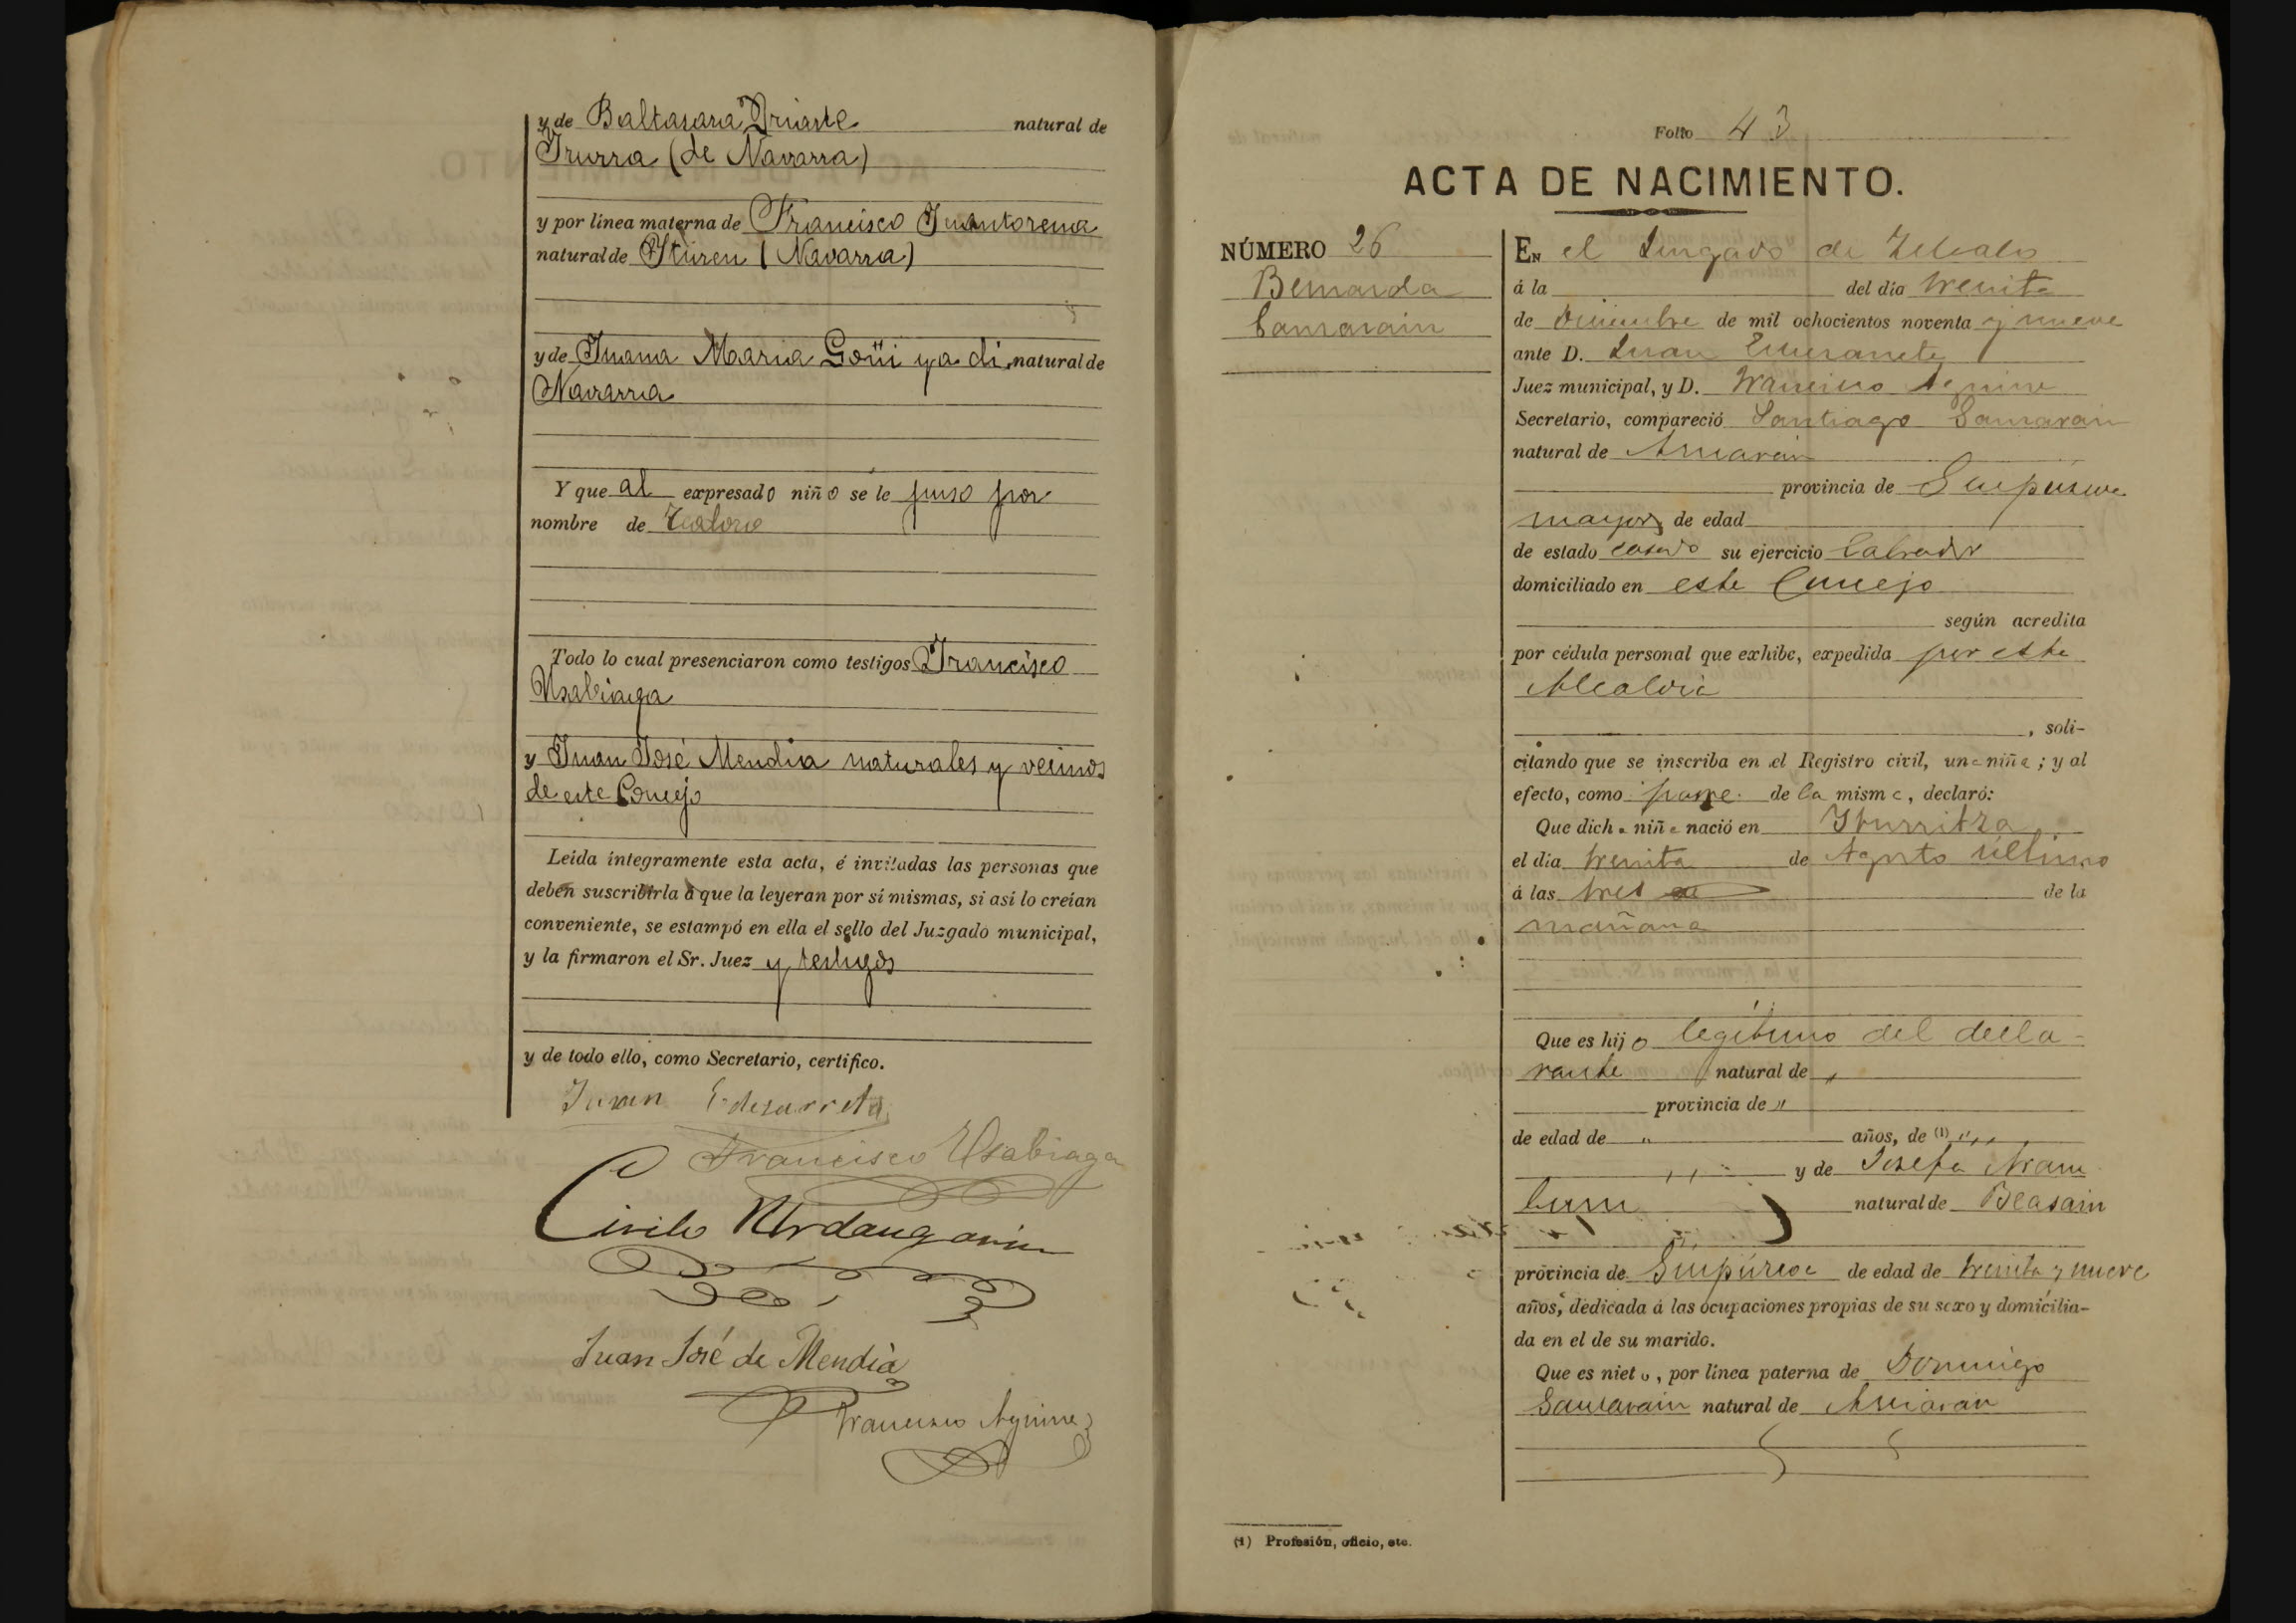 y de Baltasara Yriarte natural de
Yrurra (de Navarra)
y por línea materna de Francisco Juantorena
natural de Yturen (Navarra)
y de Juana Maria Goñi ya di. natural de
Navarra
Y que al expresado niño se le puso por
nombre de
Todo lo cual presenciaron como testigos Francisco
Usabiaga
y Juan José Mendia naturales y vecinos
de este Concejo
Leída íntegramente esta acta, é invitadas las personas que
deben suscribirla á que la leyeran por sí mismas, si así lo creían
conveniente, se estampó en ella el sello del Juzgado municipal,
y la firmaron el Sr. Juez y testigos
y de todo ello, como Secretario, certifico.
Juan
Francisco Usabiaga
Cirilo Urdangarin
Juan José de Mendia
Francisco Aguirre
Folio 43
ACTA DE NACIMIENTO.
NÚMERO 26
Bernarda
EN el Juzgado de
á la del día treinta
de Diciembre de mil ochocientos noventa y nueve
ante D. Juan
Juez municipal, y D. Francisco Aguirre
Secretario, compareció Santiago
natural de
provincia de Guipúzcoa
mayor de edad
de estado casado su ejercicio labrador
domiciliado en este Concejo
según acredita
por cédula personal que exhibe, expedida por esta
Alcaldia
, soli-
citando que se inscriba en el Registro civil, una niña; y al
efecto, como padre de la misma, declaró:
Que dicha niña nació en Yturritza
el día treinta de Agosto último
á las tres de la
mañana
Que es hijo legítimo del decla-
rante natural de "
provincia de "
de edad de " años, de (1) "
" y de Josefa
natural de Beasain
provincia de Guipúzcoa de edad de treinta y nueve
años, dedicada á las ocupaciones propias de su sexo y domicilia-
da en el de su marido.
Que es nieto, por línea paterna de Domingo
natural de
(1) Profesión, oficio, etc.